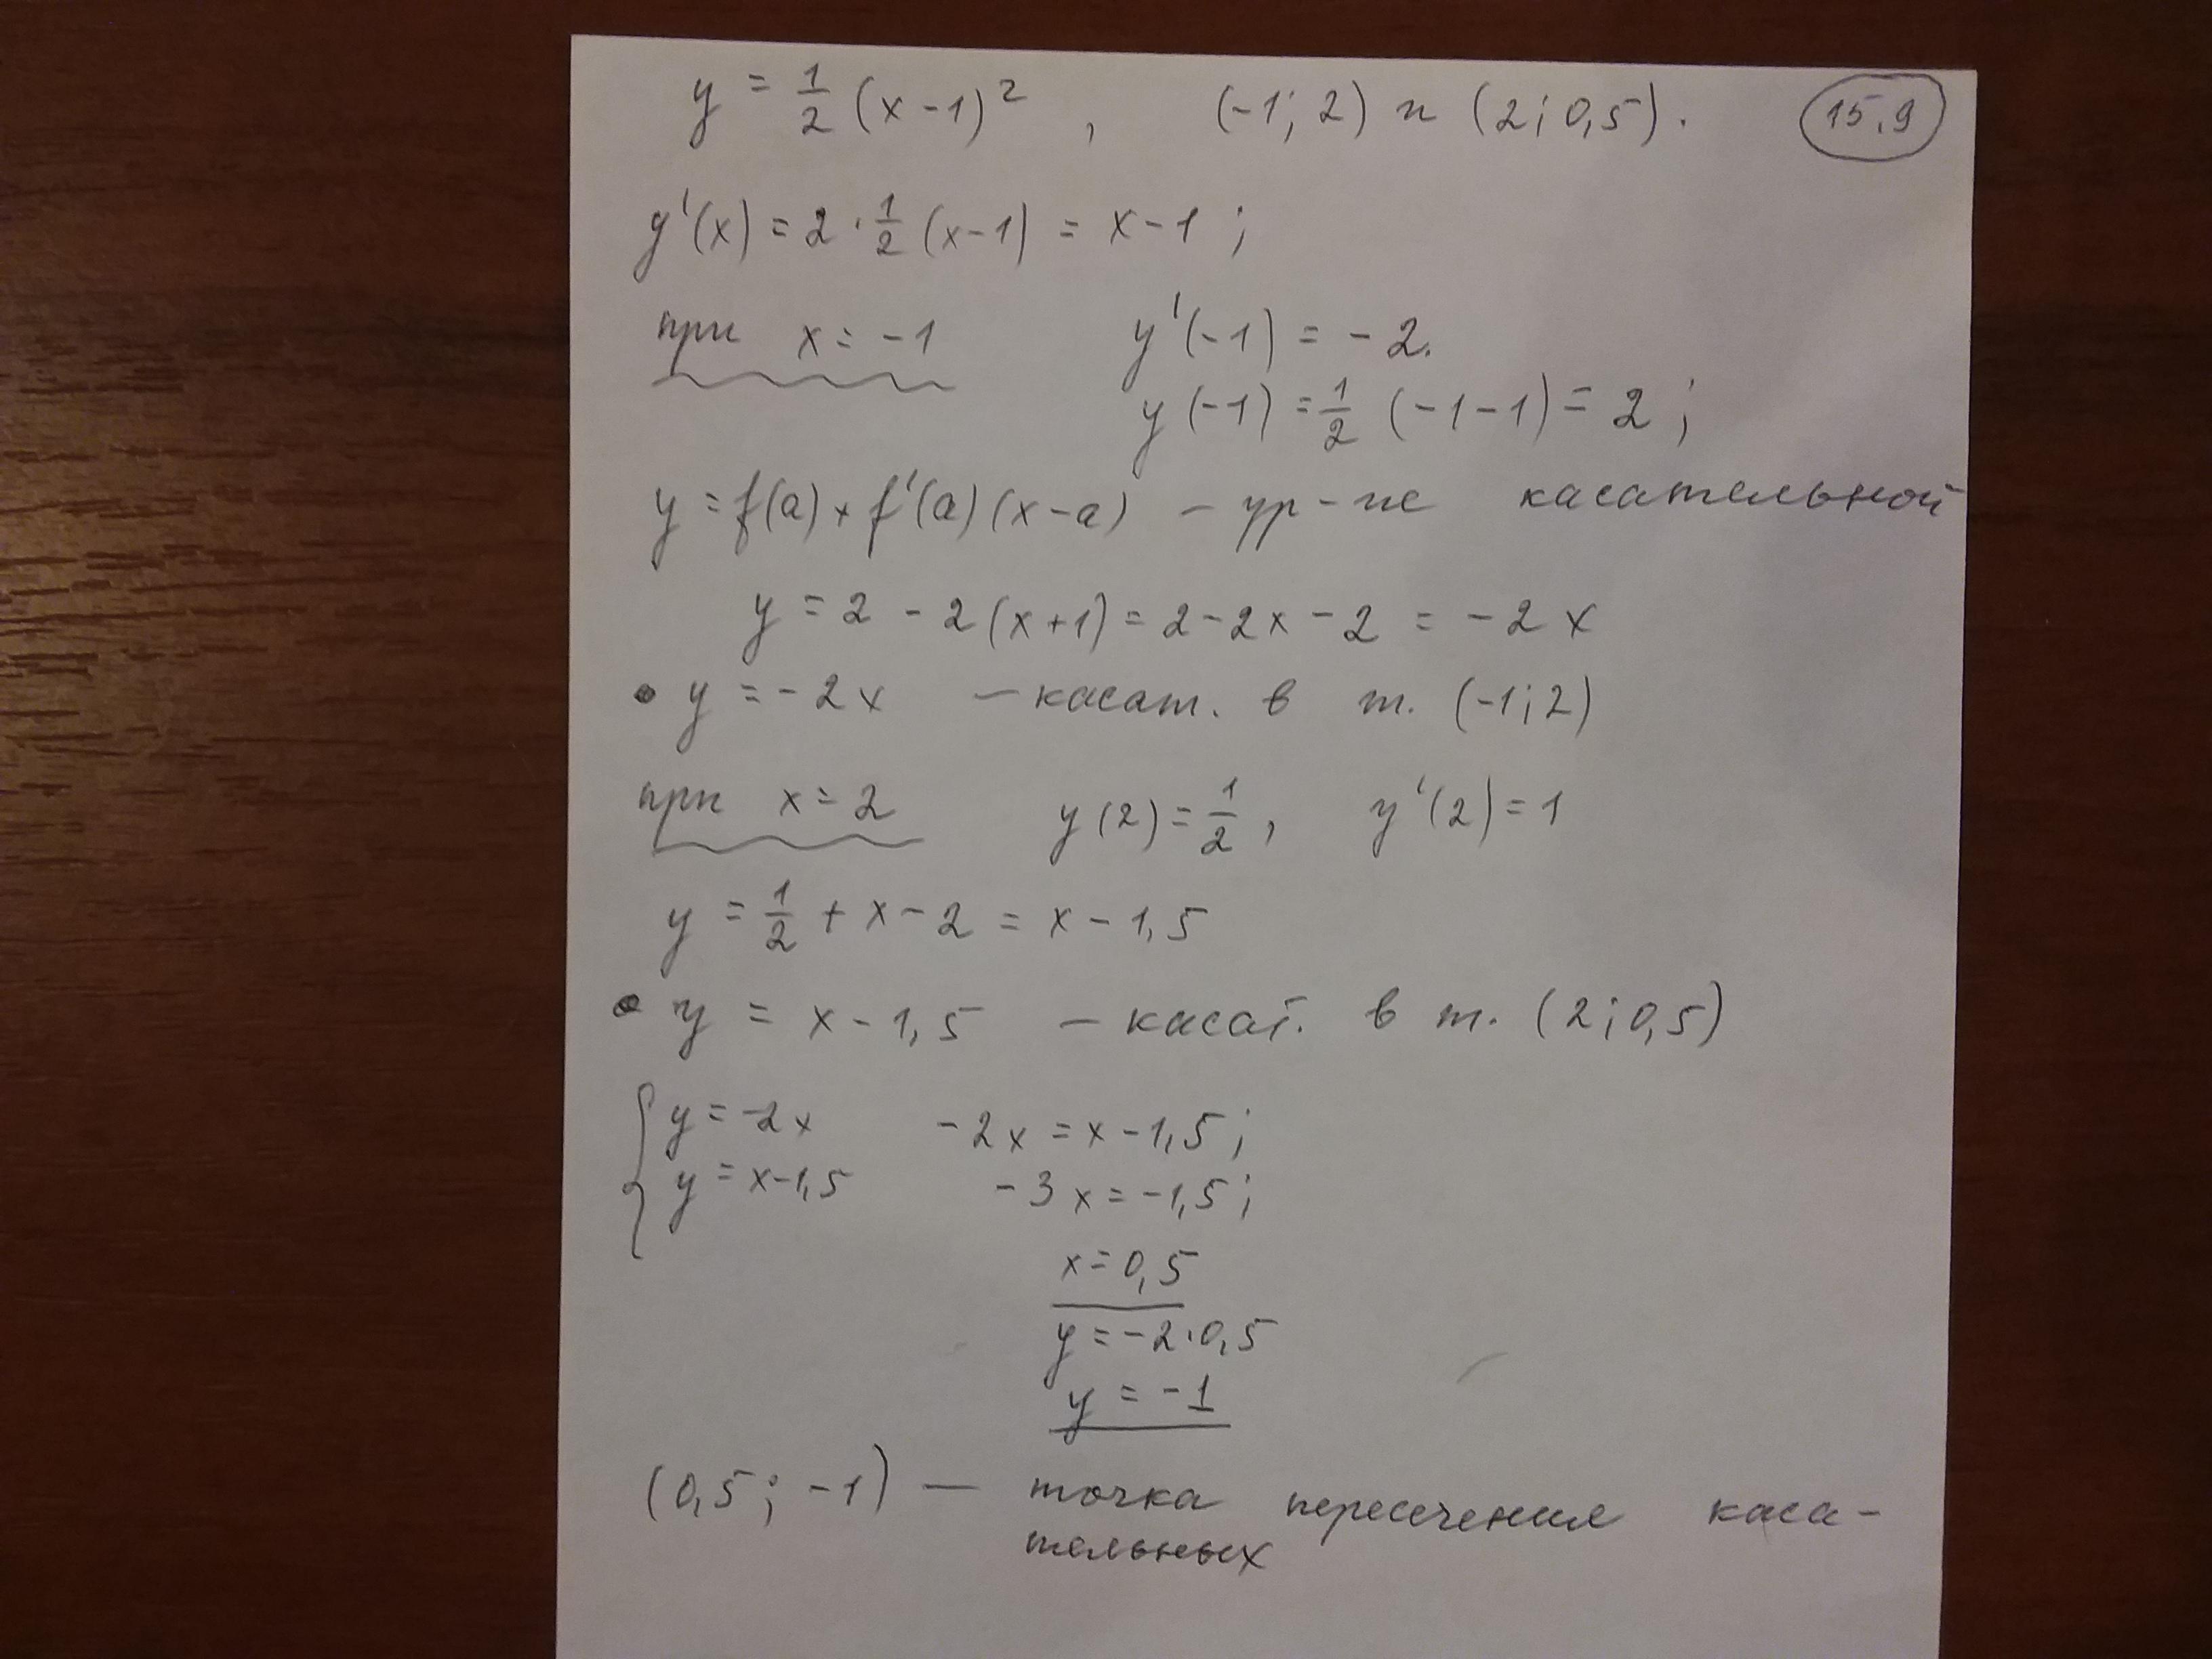 y = 1/2 (x-1)², (-1; 2) и (2; 0,5). 15.9
y'(x) = 2 · 1/2 (x-1) = x-1 ;
при x = -1 y'(-1) = -2.
y(-1) = 1/2 (-1-1) = 2 ;
y = f(a) + f'(a)(x-a) – ур-ие касательной
y = 2 - 2(x+1) = 2-2x-2 = -2x
• y = -2x – касат. в т. (-1; 2)
при x = 2 y(2) = 1/2, y'(2) = 1
y = 1/2 + x - 2 = x - 1,5
• y = x - 1,5 – касат. в т. (2; 0,5)
{ y = -2x -2x = x - 1,5 ;
y = x-1,5 -3x = -1,5 ;
x = 0,5
y = -2·0,5
y = -1
(0,5; -1) — точка пересечения каса-
тельных